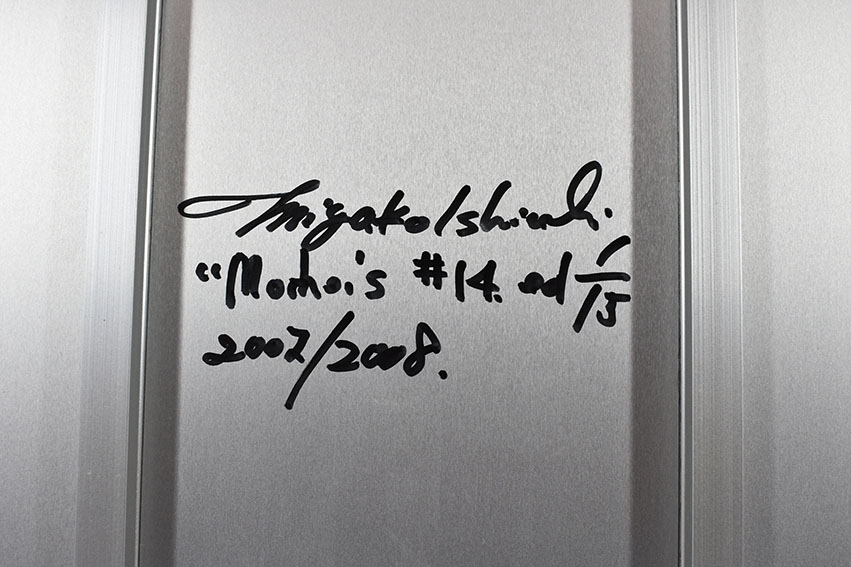 Miyako Ishiuchi.
"Momoi's #14. ed 1/15
2007/2008.